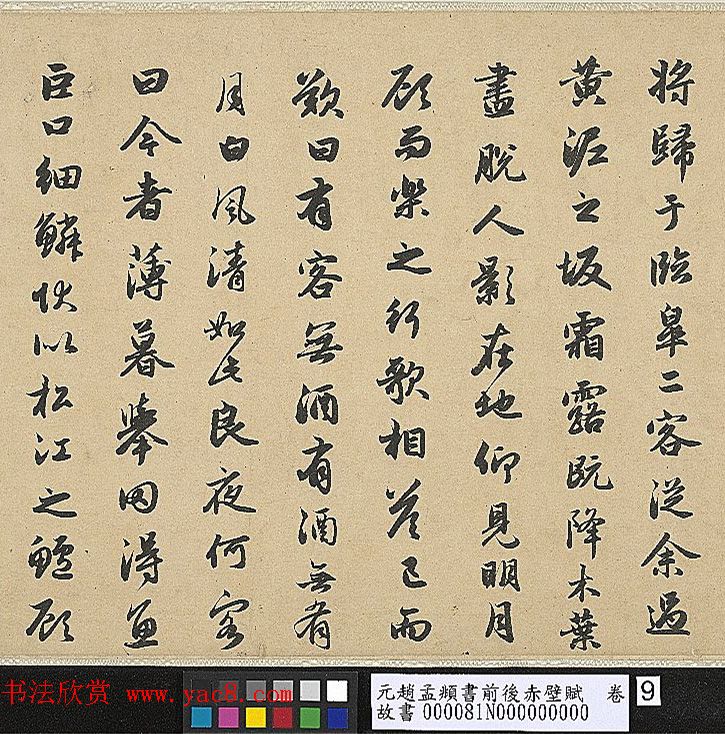 將歸于臨皋二客從余過
黃泥之坂霜露既降木葉
盡脫人影在地仰見明月
顧而樂之行歌相答已而
歎曰有客無酒有酒無肴
月白風清如此良夜何客
曰今者薄暮舉网得魚
巨口細鱗狀似松江之鱸顧
书法欣赏 www.yac8.com
元趙孟頫書前後赤壁賦 卷 9
故書 000081N000000000